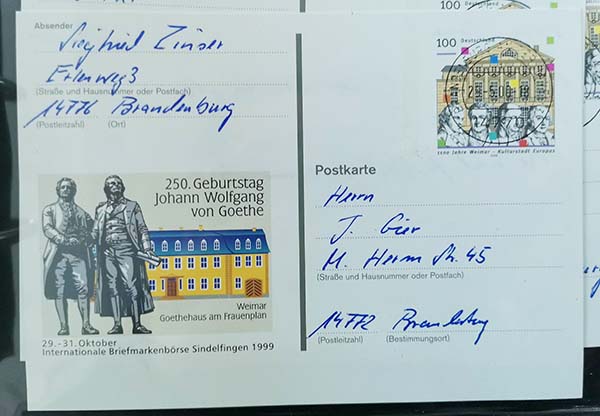 Absender
Siegfried Zinser
Erlenweg 3
(Straße und Hausnummer oder Postfach)
14776 Brandenburg
(Postleitzahl) (Ort)
100 Deutschland
1100 Jahre Weimar - Kulturstadt Europas
250. Geburtstag
Johann Wolfgang
von Goethe
Weimar
Goethehaus am Frauenplan
29.-31.Oktober
Internationale Briefmarkenbörse Sindelfingen 1999
Postkarte
Herrn
J. Gier
M. Herm Str. 45
(Straße und Hausnummer oder Postfach)
14772 Brandenburg
(Postleitzahl) (Bestimmungsort)
100